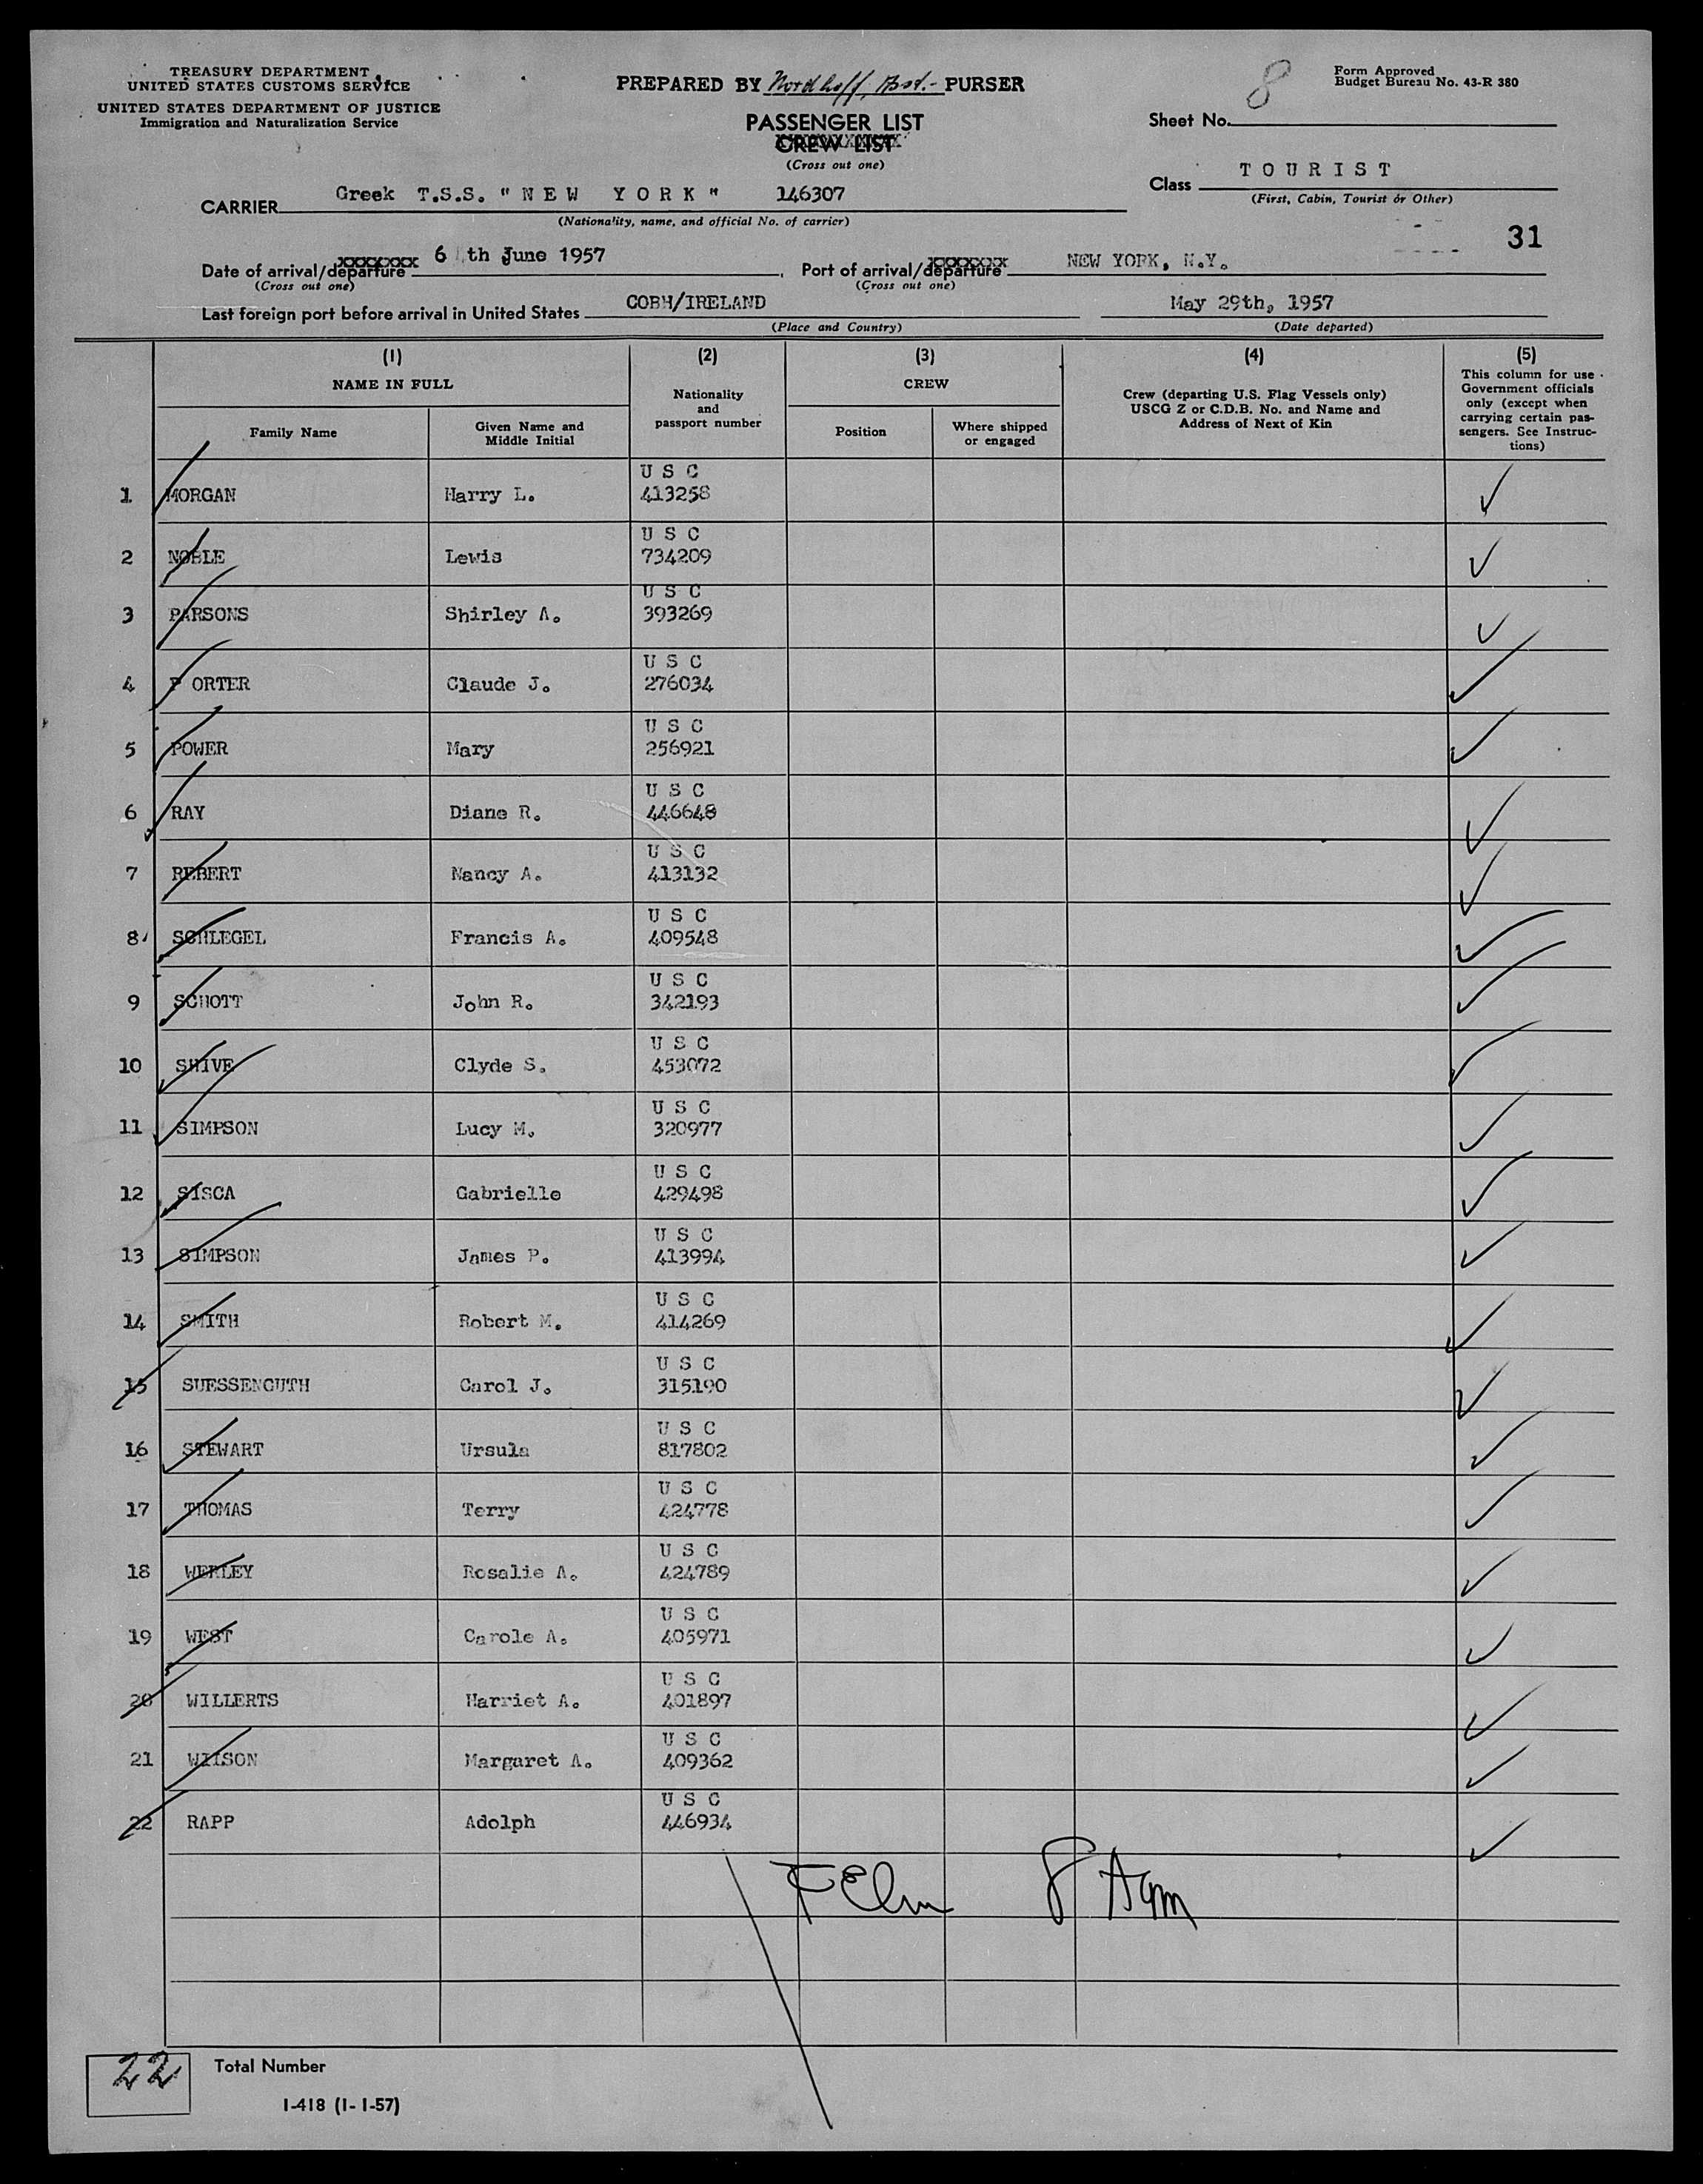 TREASURY DEPARTMENT
UNITED STATES CUSTOMS SERVICE
UNITED STATES DEPARTMENT OF JUSTICE
Immigration and Naturalization Service
PREPARED BY Nordhoff, PURSER
PASSENGER LIST
CREW LIST
(Cross out one)
8
Form Approved
Budget Bureau No. 43-R 380
Sheet No.
Class TOURIST
(First, Cabin, Tourist or Other)
CARRIER Greek T.S.S. "NEW YORK" 146307
(Nationality, name, and official No. of carrier)
31
Date of arrival/departure 6 th June 1957, Port of arrival/departure NEW YORK, N.Y.
(Cross out one) (Cross out one)
Last foreign port before arrival in United States COBH/IRELAND May 29th, 1957
(Place and Country) (Date departed)
(1) (2) (3) (4) (5)
NAME IN FULL
Family Name
Given Name and
Middle Initial
Nationality
and
passport number
CREW
Position
Where shipped
or engaged
Crew (departing U.S. Flag Vessels only)
USCG Z or C.D.B. No. and Name and
Address of Next of Kin
This column for use
Government officials
only (except when
carrying certain pas-
sengers. See Instruc-
tions)
U S C
1 MORGAN Harry L. 413258
U S C
2 NOBLE Lewis 734209
U S C
3 PARSONS Shirley A. 393269
U S C
4 P ORTER Claude J. 276034
U S C
5 POWER Mary 256921
U S C
6 RAY Diane R. 446648
U S C
7 REBERT Nancy A. 413132
U S C
8 SCHLEGEL Francis A. 409548
U S C
9 SCHOTT John R. 342193
U S C
10 SHIVE Clyde S. 453072
U S C
11 SIMPSON Lucy M. 320977
U S C
12 SISCA Gabrielle 429498
U S C
13 SIMPSON James P. 413994
U S C
14 SMITH Robert M. 414269
U S C
15 SUESSENGUTH Carol J. 315190
U S C
16 STEWART Ursula 817802
U S C
17 THOMAS Terry 424778
U S C
18 WERLEY Rosalie A. 424789
U S C
19 WEST Carole A. 405971
U S C
20 WILLERTS Harriet A. 401897
U S C
21 WILSON Margaret A. 409362
U S C
22 RAPP Adolph 446934
22 Total Number
I-418 (1-1-57)